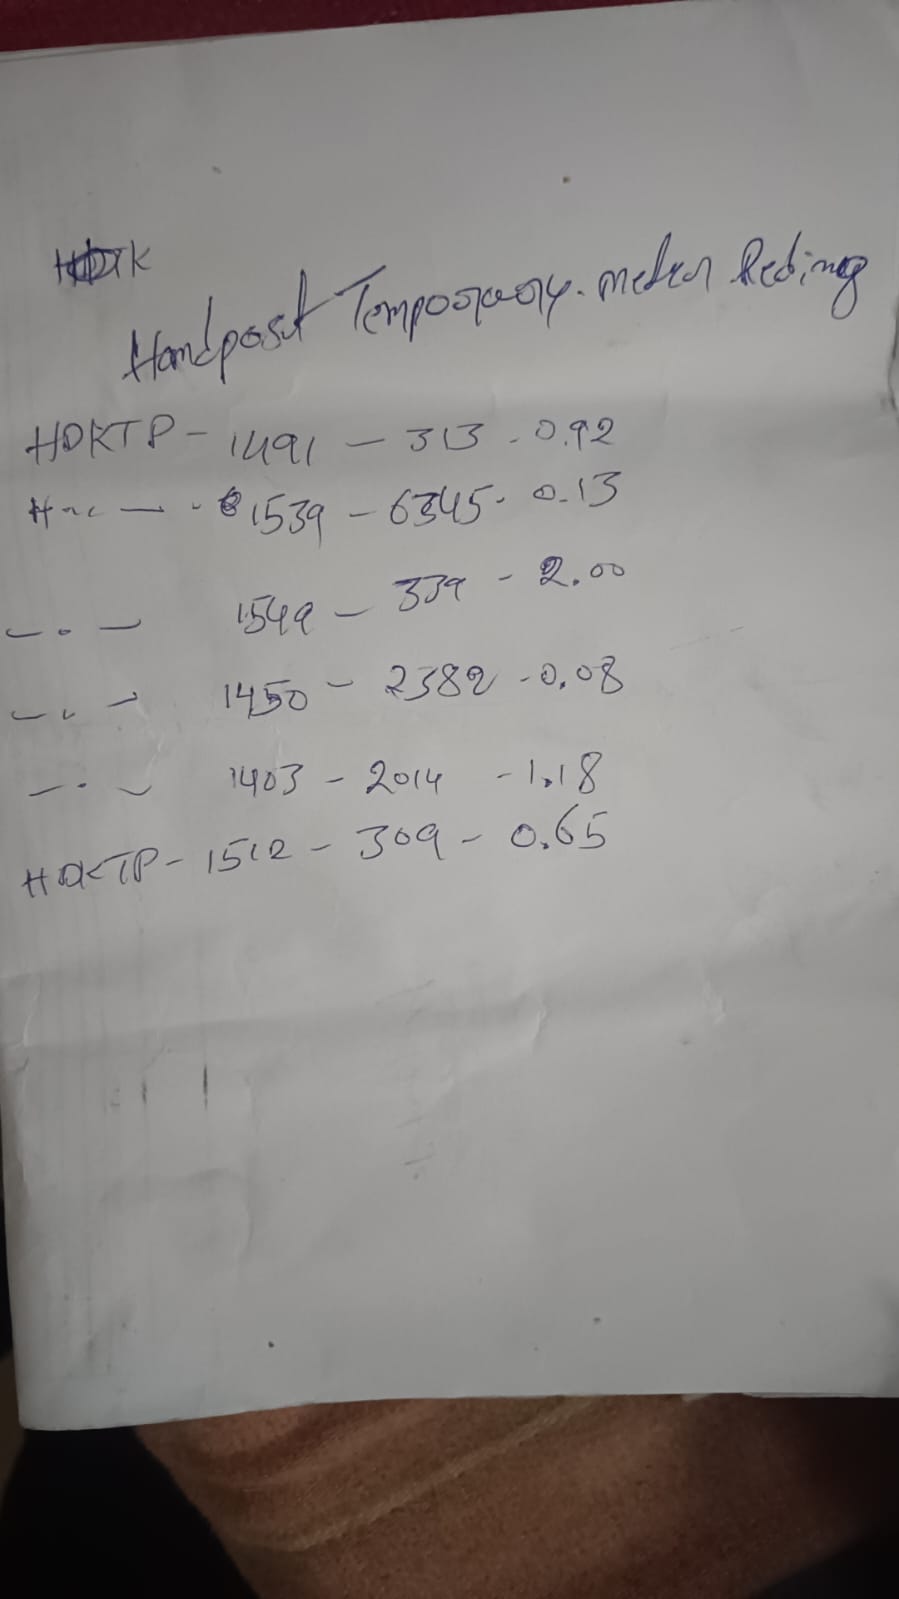 Handpost Temporary. meter Reding
HDKTP - 1491 - 313 - 0.92
1539 - 6345 - 0.13
1549 - 339 - 2.00
1450 - 2382 - 0.08
1403 - 2014 - 1.18
HDKTP - 1512 - 309 - 0.65